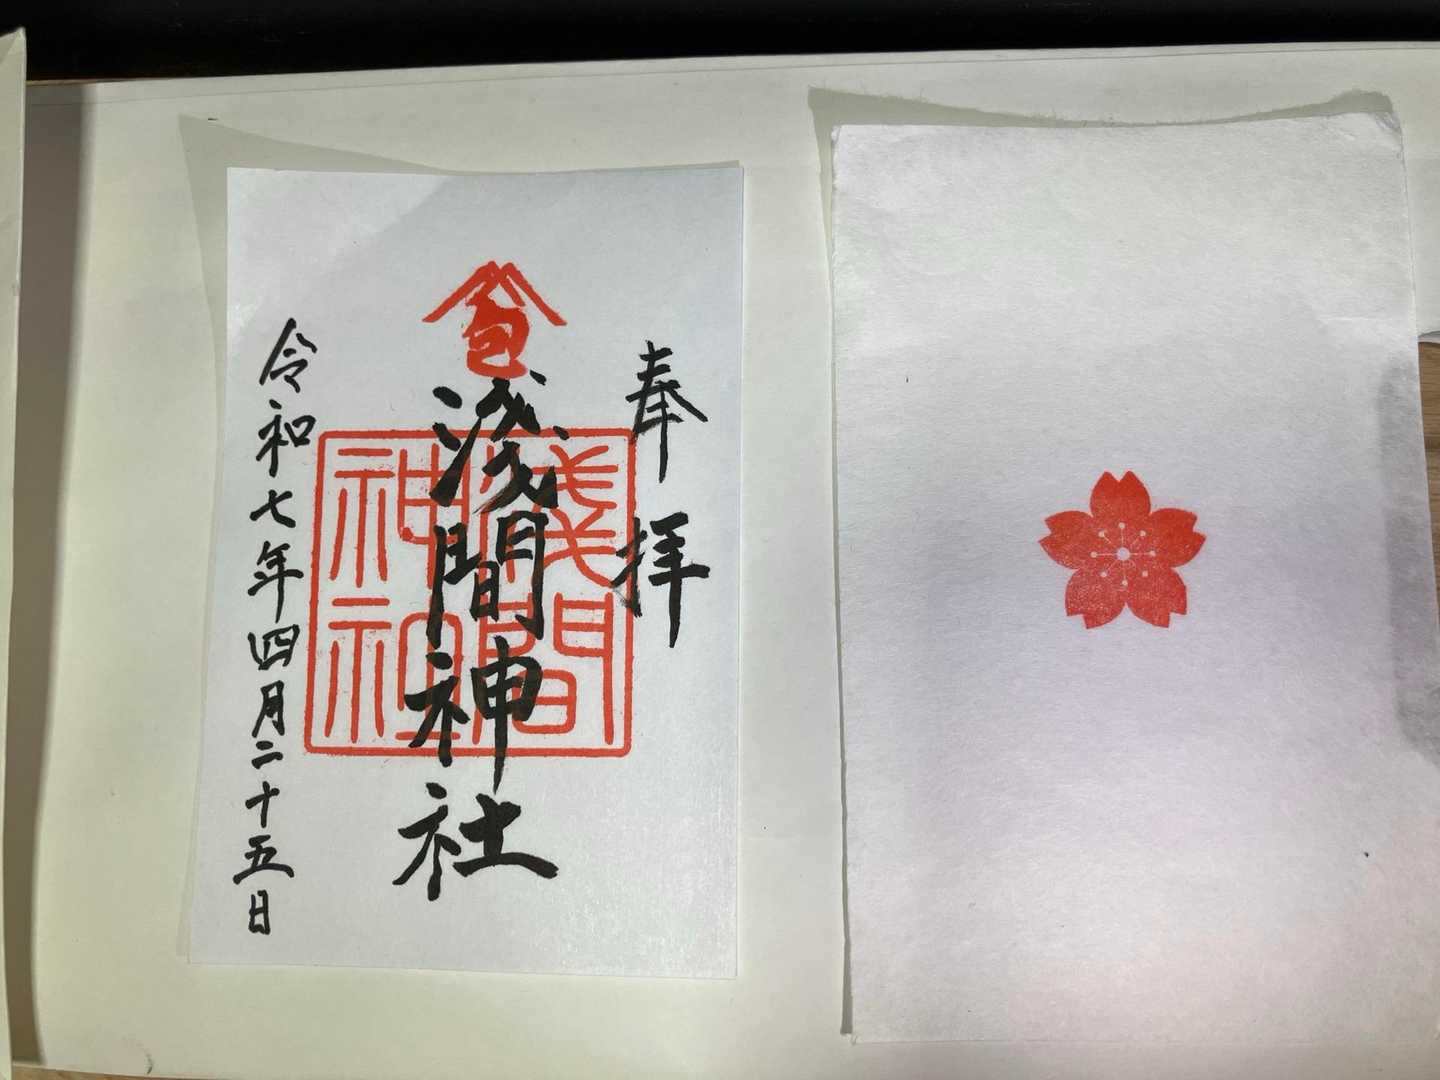 奉拝
浅間神社
浅間
神社
令和七年四月二十五日